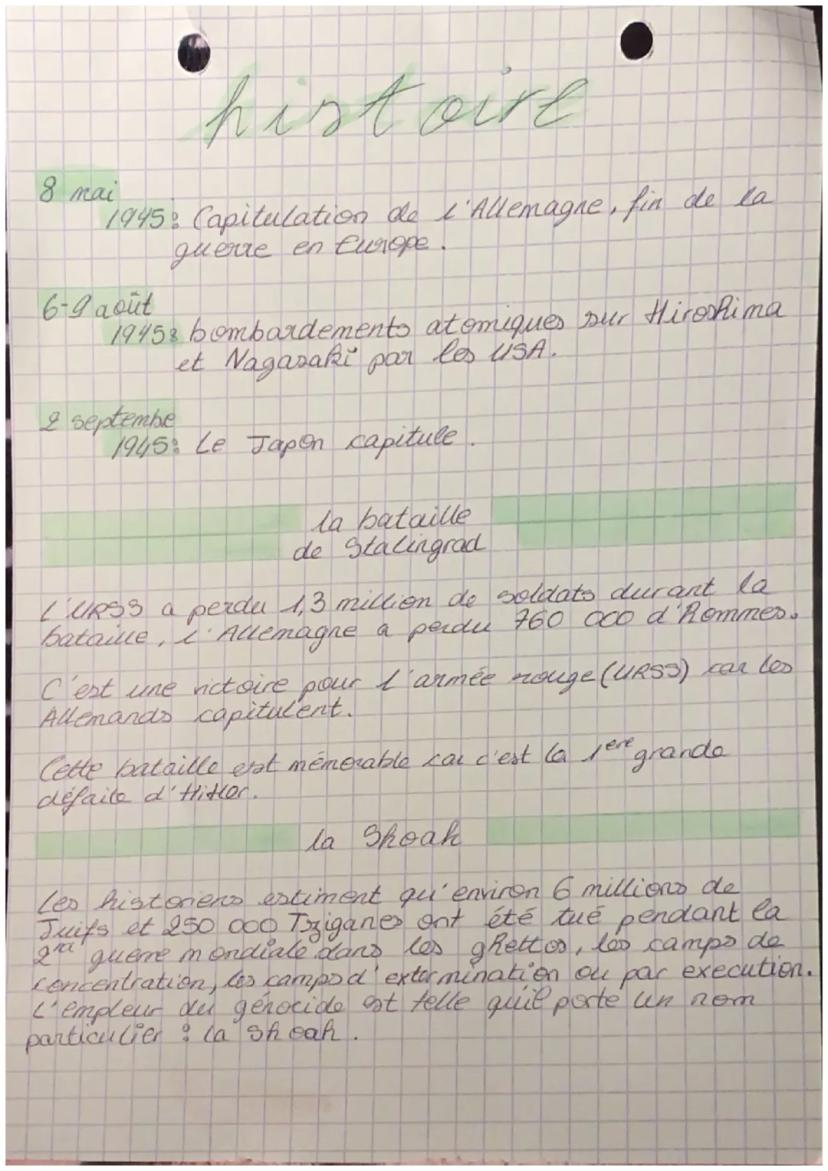 histoire
8 mai
1945: Capitulation de l'Allemagne, fin de la
guerre en Europe.
6-9 août
1945: bombardements atomiques sur Hiroshima
et Nagasaki par les USA.
2 septembe
1945: Le Japon capitule.
la bataille
de Stalingrad
L'URSS a perdu 1,3 million de soldats durant la
bataille, l'Allemagne a perdu 760 000 d'Hommes.
C'est une victoire pour l'armée rouge (URSS) car les
Allemands capitulent.
Cette bataille est mémorable car c'est la 1ère grande
défaite d'Hitler.
la Shoah
Les historiens estiment qu'environ 6 millions de
Juifs et 250 000 Tziganes ont été tué pendant la
guerre mondiale dans les ghettos, les camps de
concentration, les camps d'extermination ou par execution.
L'empleur du génocide est telle qu'il porte un nom
particulier : la Shoah.